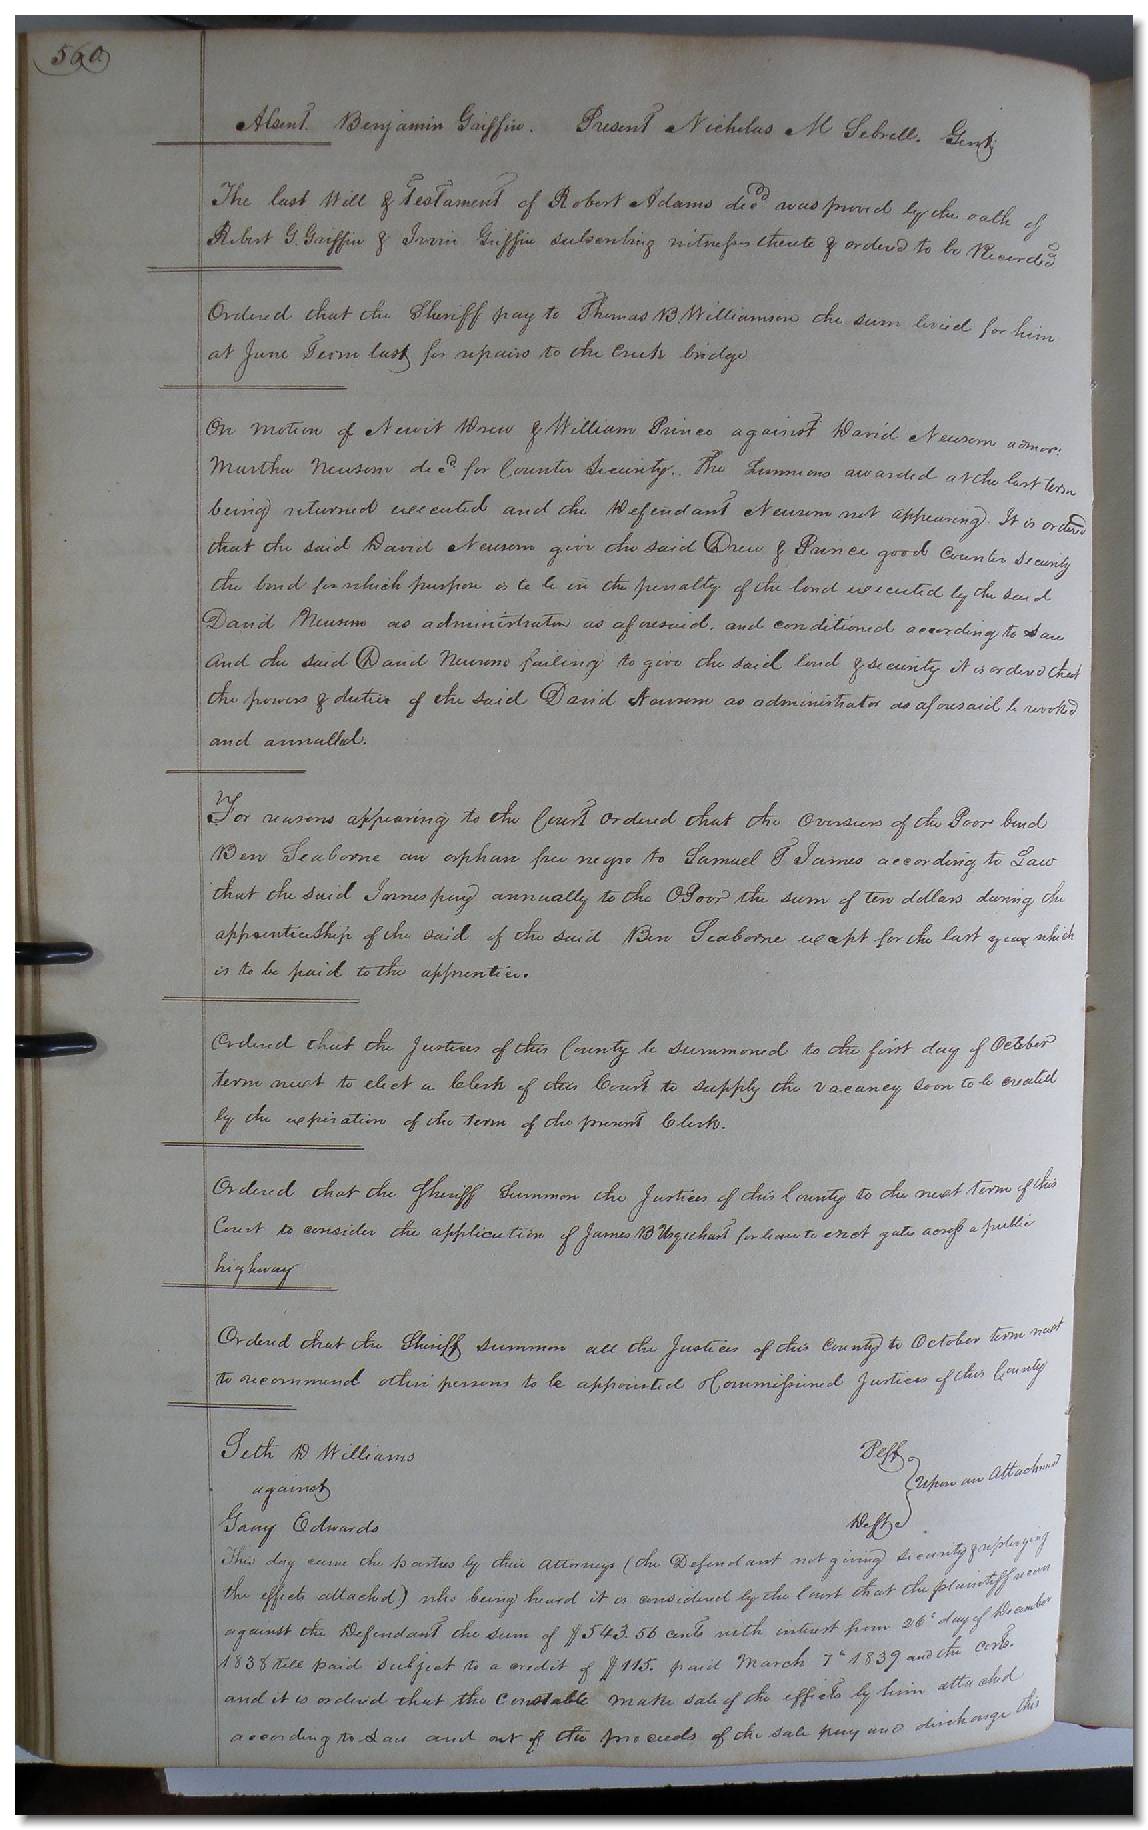 560
Absent. Benjamin Griffin. Present Nicholas M Sebrell. Gent
The last Will & Testament of Robert Adams decd was proved by the oath of
Robert G. Griffin & Irvin Griffin subscribing witnesses thereto & ordered to be Recorded
Ordered that the Sheriff pay to Thomas B Williamson the sum levied for him
at June Term last for repairs to the Creek bridge
On motion of Newit Drew & William Prince against David Newsom admor.
Martha Newsom decd. for Counter Security. The Summons awarded at the last term
being returned executed and the Defendant Newsom not appearing. It is ordered
that the said David Newsom give the said Drew & Prince good Counter Security
the bond for which purpose is to be in the penalty of the bond executed by the said
David Newsom as administrator as aforesaid. and conditioned according to Law
And the said David Newsom failing to give the said bond & security it is ordered that
the powers & duties of the said David Newsom as administrator as aforesaid be revoked
and annulled.
For reasons appearing to the Court Ordered that the Overseers of the Poor bind
Ben Seaborne an orphan free negro to Samuel T James according to Law
that the said James pay annually to the O Poor the sum of ten dollars during the
apprenticeship of the said of the said Ben Seaborne except for the last year which
is to be paid to the apprentice.
Ordered that the Justices of this County be summoned to the first day of October
term next to elect a Clerk of this Court to supply the vacancy soon to be created
by the expiration of the term of the present Clerk.
Ordered that the Sheriff Summon the Justices of this County to the next term of this
Court to consider the application of James B Urquhart for leave to erect gates across a public
highway
Ordered that the Sheriff summon all the Justices of this County to October term next
to recommend other persons to be appointed & Commissioned Justices of this County
Seth D Williams Plff
against upon an Attachment
Gary Edwards Deft
This day came the parties by their Attorneys (the Defendant not giving security & replevying
the effects attached) who being heard it is considered by the Court that the plaintiff recover
against the Defendant the sum of $543.56 cents with interest from 26th day of December
1838 till paid subject to a credit of $115. paid March 7th 1839 and the costs.
and it is ordered that the Constable make sale of the effects by him attached
according to Law and out of the proceeds of the sale pay and discharge this